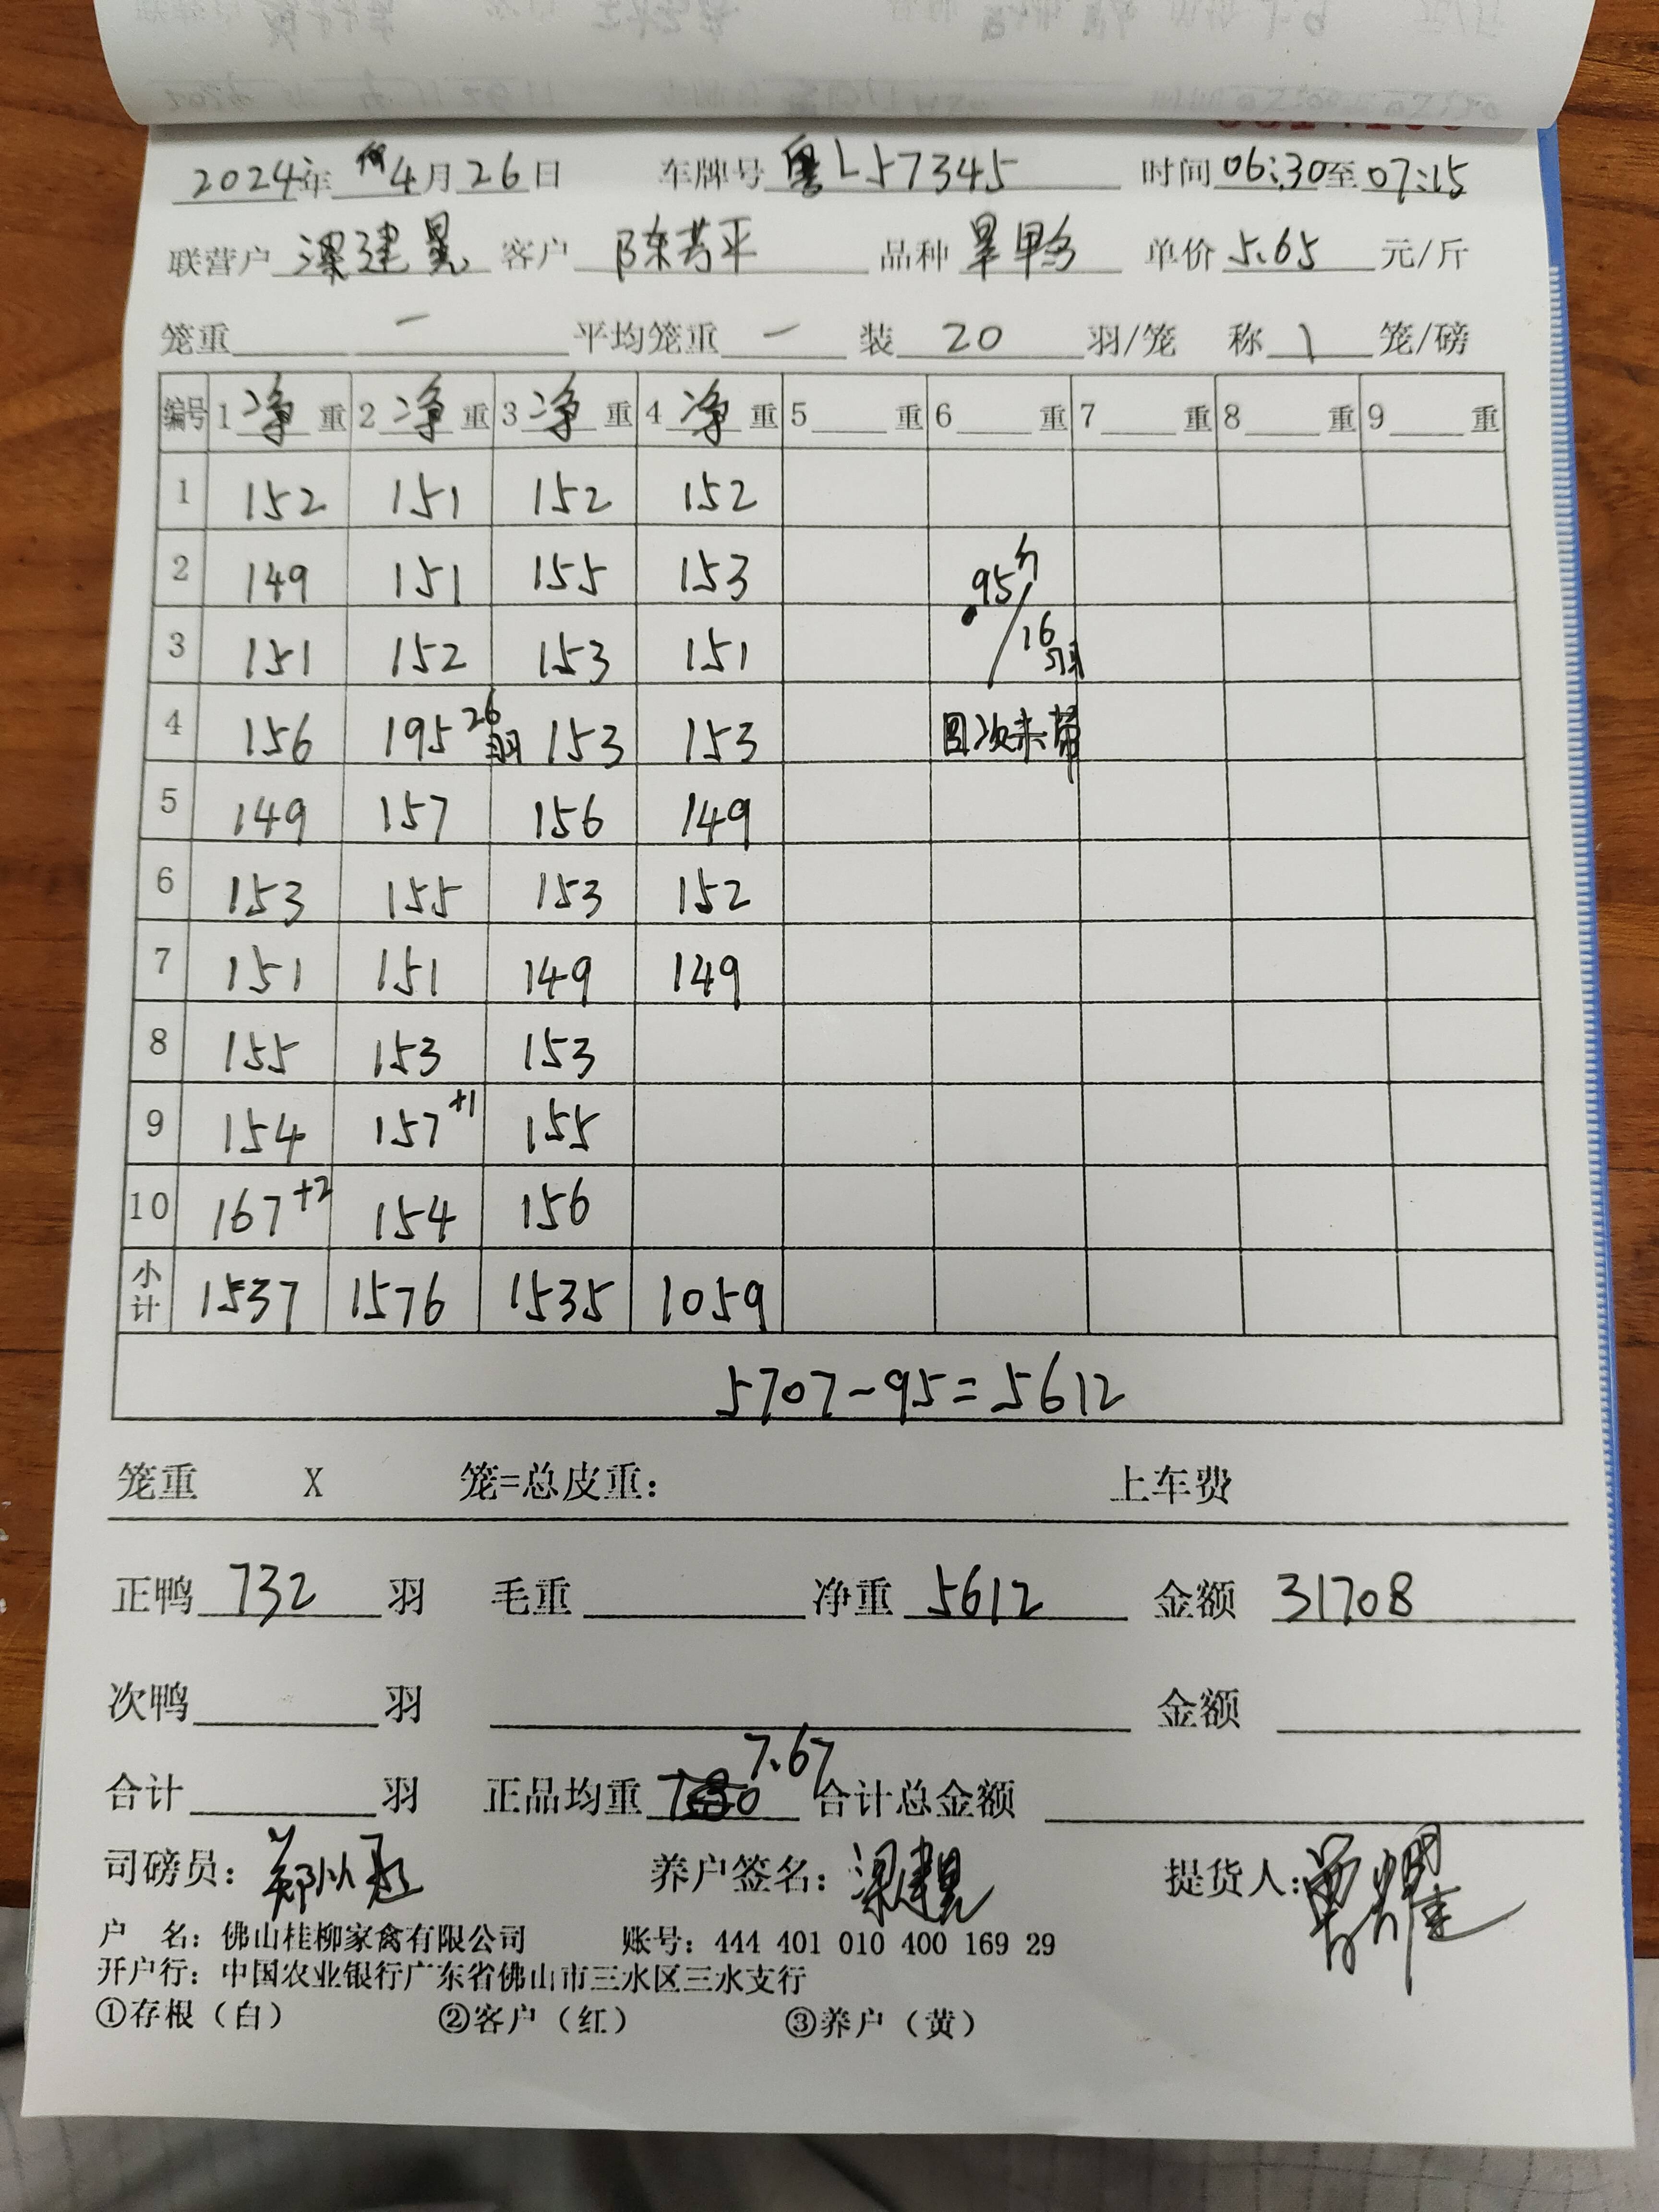 2024年 4月26日 车牌号 粤L57345 时间06:30至07:15
联营户 梁建 客户 陈芳平 品种 旱鸭 单价 5.65 元/斤
笼重 一 平均笼重 一 装 20 羽/笼 称 1 笼/磅
编号 1 净 重 2 净 重 3 净 重 4 净 重 5 重 6 重 7 重 8 重 9 重
1 152 151 152 152
2 149 151 155 153 95斤/
3 151 152 153 151 16羽
4 156 195 26羽 153 153 次未带
5 149 157 156 149
6 153 155 153 152
7 151 151 149 149
8 155 153 153
9 154 157+1 155
10 167+2 154 156
小计 1537 1576 1535 1059
5707-95=5612
笼重 X 笼=总皮重: 上车费
正鸭 732 羽 毛重 净重 5612 金额 31708
次鸭 羽 金额
合计 羽 正品均重 7.67 合计总金额
司磅员: 养户签名: 梁建 提货人:
户 名: 佛山桂柳家禽有限公司 账号: 444 401 010 400 169 29
开户行: 中国农业银行广东省佛山市三水区三水支行
①存根（白） ②客户（红） ③养户（黄）